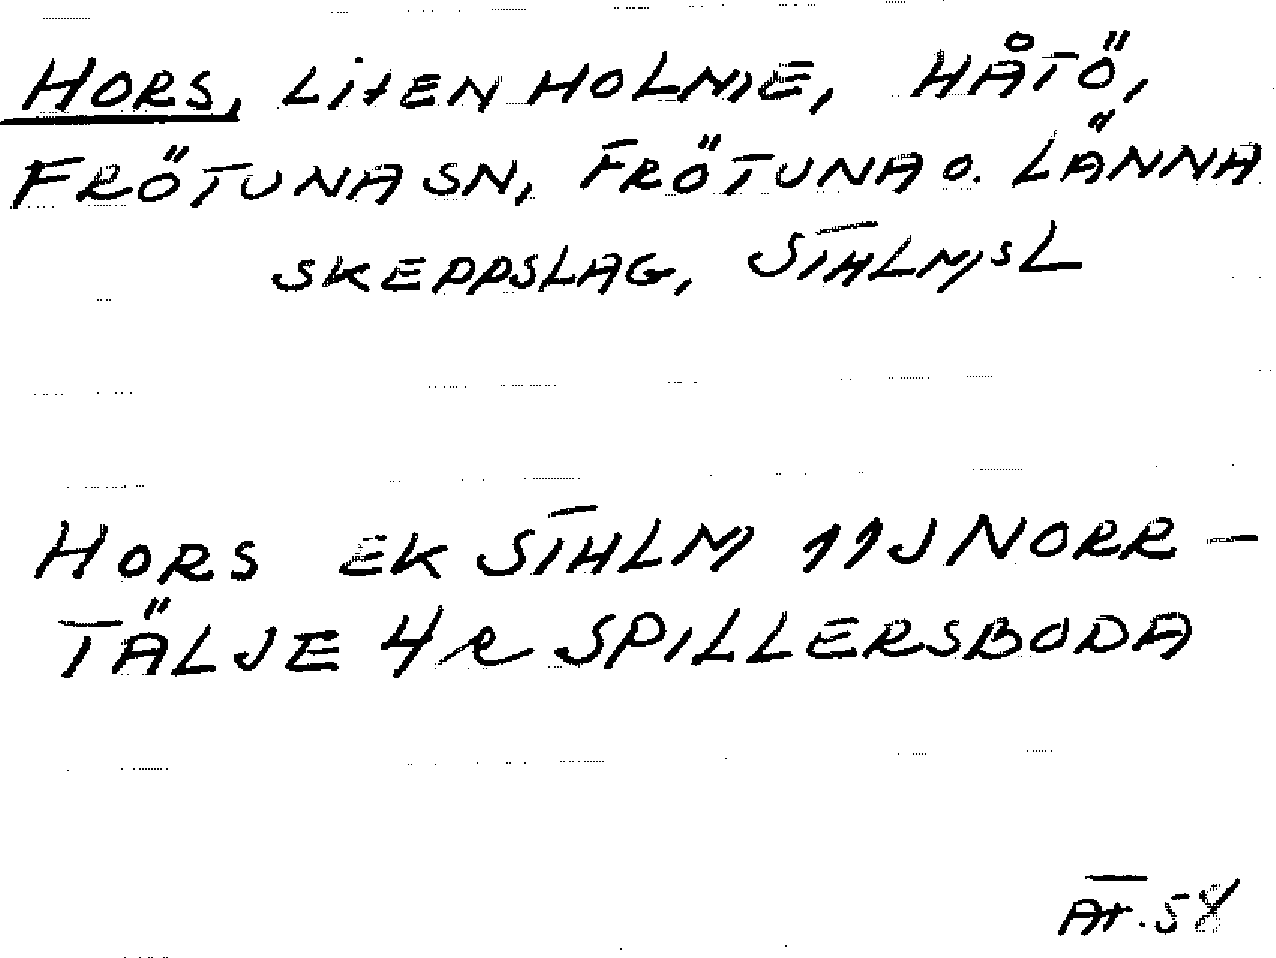 HORS, LITEN HOLME, HÅTÖ,
FRÖTUNA SN, FRÖTUNA O. LÄNNA
SKEPPSLAG, STHLMSL
HORS EK STHLM 11J NORR-
TÄLJE 4 R SPILLERSBODA
AT. 58